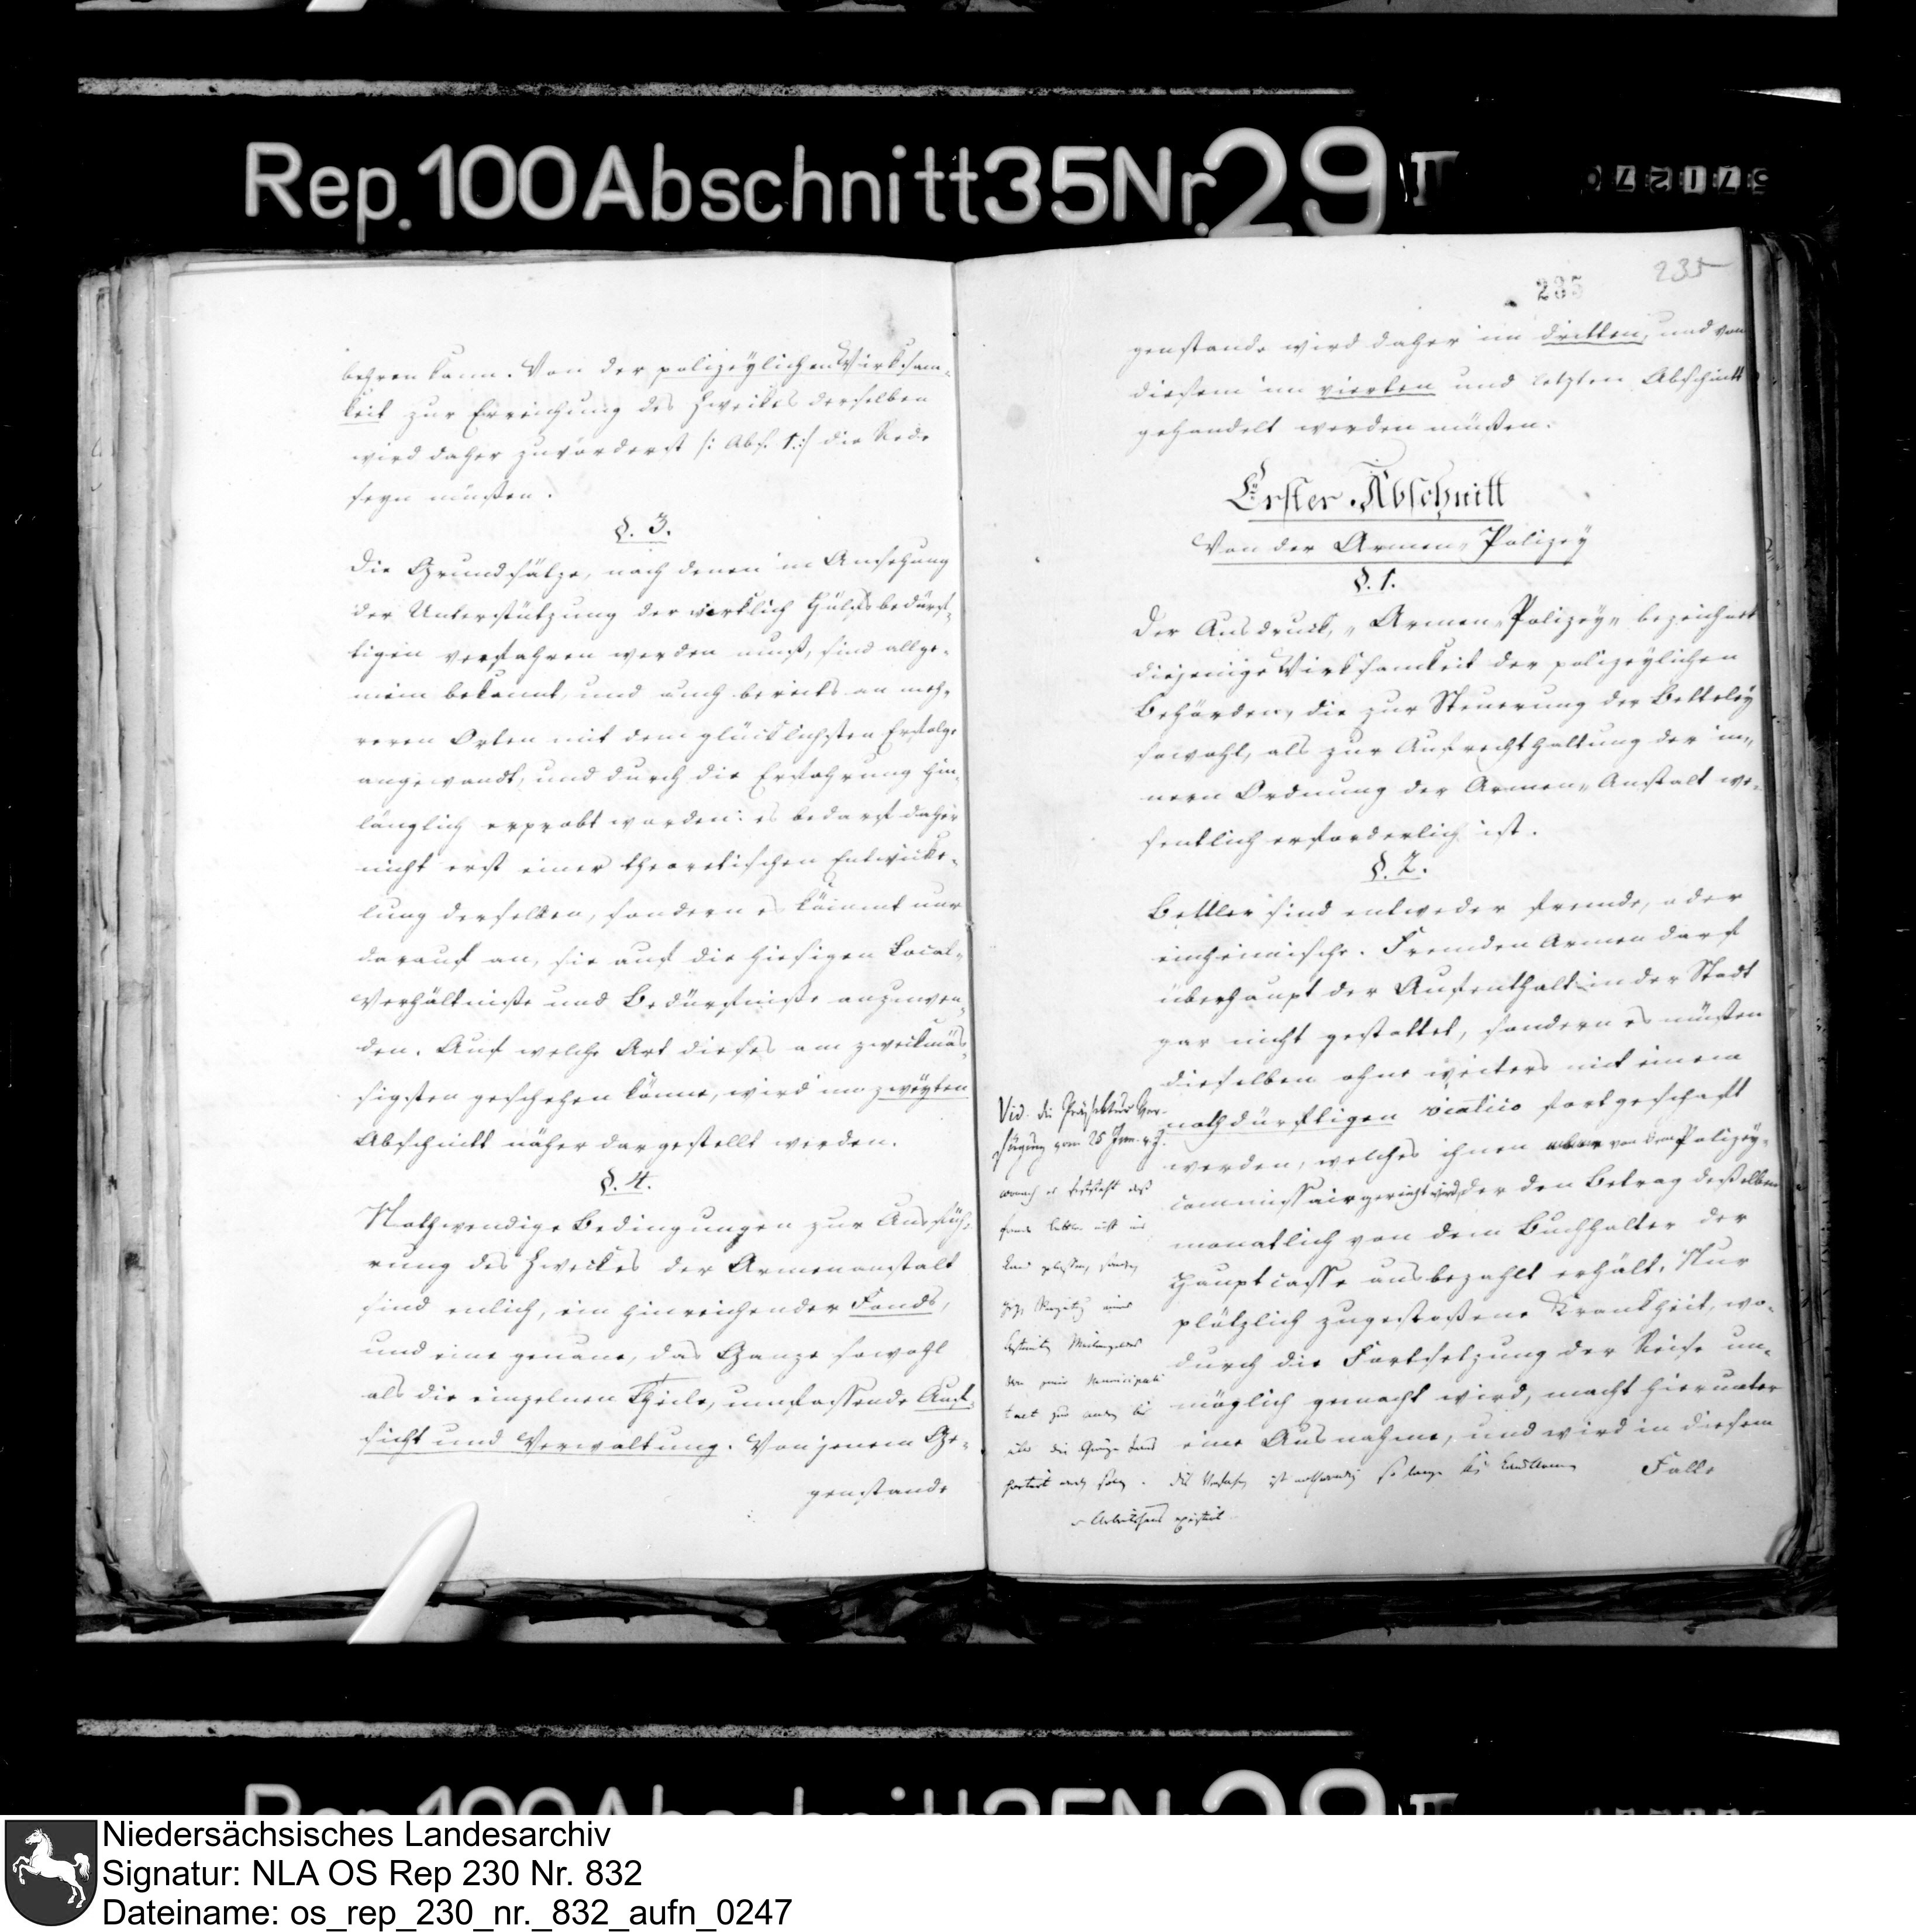 Rep. 100 Abschnitt 35 Nr. 29 II
behren kann. Von der polizeylichen Wirksam-
keit zur Erreichung des Zweckes derselben
wird daher zuvörderst /: Abs. 1 :/ die Rede
seyn müßen.
§. 3.
Die Grundsätze, nach denen in Ansehung
der Unterstützung der wirklich Hülfsbedürf-
tigen verfahren werden muß, sind allge-
mein bekannt, und auch bereits an meh-
reren Orten mit dem glücklichsten Erfolge
angewandt, und durch die Erfahrung hin-
länglich erprobt worden: es bedarf daher
nicht erst einer theoretischen Entwicke-
lung derselben, sondern es kömmt nur
darauf an, sie auf die hiesigen Local-
Verhältniße und Bedürfniße anzuwen-
den. Auf welche Art dieses am zweckmäs-
sigsten geschehen könne, wird im zweyten
Abschnitt näher dargestellt werden.
§. 4.
Nothwendige Bedingungen zur Ausfüh-
rung des Zweckes der Armenanstalt
sind endlich, ein hinreichender Fonds,
und eine genaue, das Ganze sowohl
als die einzelnen Theile, umfassende Auf-
sicht und Verwaltung. Von jenem Ge-
genstande
235
235
genstande wird daher im dritten, und von
diesem im vierten und letzten Abschnitt
gehandelt werden müßen.
Erster Abschnitt
Von der Armen-Polizey
§. 1.
Der Ausdruck, „Armen-Polizey„ bezeichnet
diejenige Wirksamkeit der polizeylichen
Behörden, die zur Steuerung der Betteley
sowohl, als zur Aufrechthaltung der in-
nern Ordnung der Armen-Anstalt we-
sentlich erforderlich ist.
§. 2.
Bettler sind entweder fremde, oder
einheimische. Fremden Armen darf
überhaupt der Aufenthalt in der Stadt
gar nicht gestattet, sondern es müßen
dieselben ohne weiters mit einem
nothdürftigen viatico fortgeschafft
werden, welches ihnen von dem Polizey-
commissair gereicht wird, der den Betrag deßelben
monatlich von dem Buchhalter der
Hauptcasse ausbezahlt erhält. Nur
plötzlich zugestoßene Krankheit, wo-
durch die Fortsetzung der Reise un-
möglich gemacht wird, macht hierunter
eine Ausnahme, und wird in diesem
Falle
Vid. die Präfektur Ver-
fügung vom 25 Jan. v. J.
wonach es feststeht daß
über die Gränze trans
portirt werden sollen. Dis Verfahren ist nothwendig so lange kein Landarmen
Arbeitshaus existirt
Niedersächsisches Landesarchiv
Signatur: NLA OS Rep 230 Nr. 832
Dateiname: os_rep_230_nr._832_aufn_0247